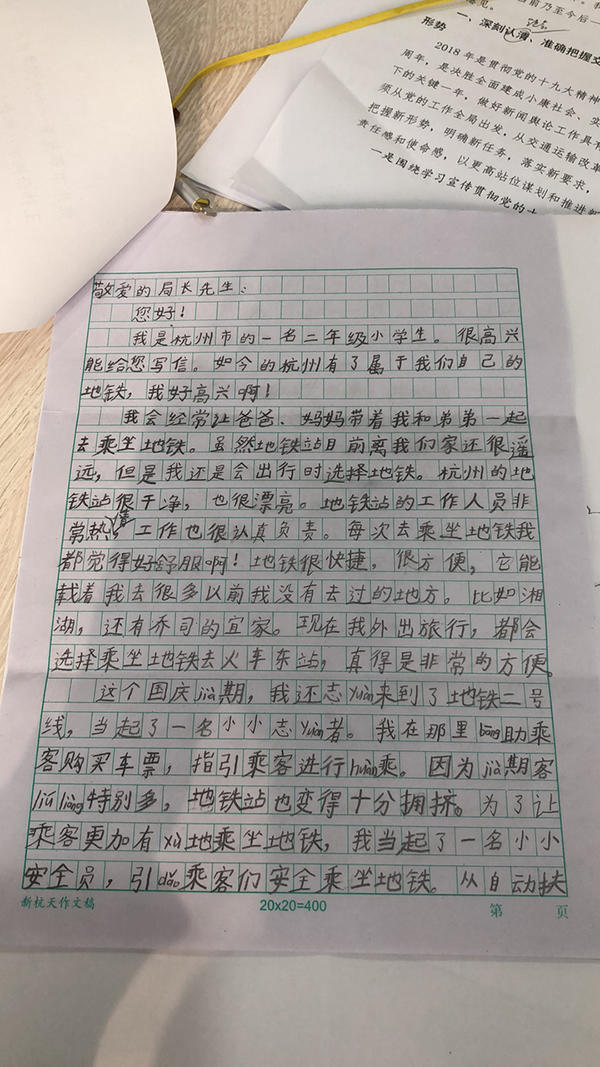 形势
一、深刻认清、准确把握交
2018年是贯彻党的十九大精神
周年，是决胜全面建成小康社会、实
下的关键一年，做好新闻舆论工作具有
须从党的工作全局出发，从交通运输改革
把握新形势，明确新任务，落实新要求，
责任感和使命感，以更高站位谋划和推进
一是围绕学习宣传贯彻党的十
敬爱的局长先生：
您好！
我是杭州市的一名二年级小学生。很高兴
能给您写信。如今的杭州有了属于我们自己的
地铁，我好高兴啊！
我会经常让爸爸、妈妈带着我和弟弟一起
去乘坐地铁。虽然地铁站目前离我们家还很遥
远，但是我还是会出行时选择地铁。杭州的地
铁站很干净，也很漂亮。地铁站的工作人员非
常热情，工作也很认真负责。每次去乘坐地铁我
都觉得好舒服啊！地铁很快捷，很方便，它能
载着我去很多以前我没有去过的地方。比如湘
湖，还有乔司的宜家。现在我外出旅行，都会
选择乘坐地铁去火车东站，真得是非常的方便。
这个国庆jià期，我还志yuàn来到了地铁二号
线，当起了一名小小志yuàn者。我在那里bāng助乘
客购买车票，指引乘客进行huàn乘。因为jià期客
liú liàng特别多，地铁站也变得十分拥挤。为了让
乘客更加有xù地乘坐地铁，我当起了一名小小
安全员，引dǎo乘客们安全乘坐地铁。从自动扶
新杭天作文稿
20x20=400
第 页